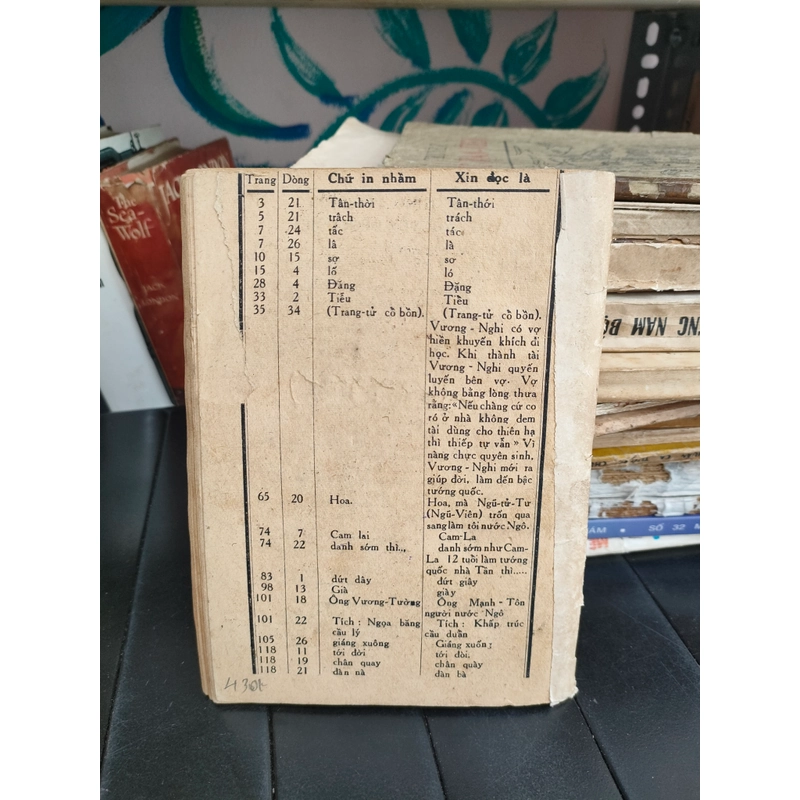 Trang Dòng Chữ in nhầm Xin đọc là
3 21 Tân-thời Tân-thới
5 21 trâch trách
7 24 tấc tác
7 26 lâ là
10 15 sợ sơ
15 4 lố ló
28 4 Đăng Đặng
33 2 Tiễu Tiều
35 34 (Trang-tử cồ bồn). (Trang-tử cồ bồn).
Vương - Nghi có vợ
hiền khuyến khích đi
học. Khi thành tài
Vương - Nghi quyến
luyến bên vợ. Vợ
không bằng lòng thưa
rằng: «Nếu chàng cứ co
ró ở nhà không đem
tài dùng cho thiên hạ
thì thiếp tự vẫn» Vì
nàng chực quyên sinh,
Vương - Nghi mới ra
giúp đời, làm đến bậc
tướng quốc.
65 20 Hoa. Hoa, mà Ngũ-tử-Tư
(Ngũ-Viên) trốn qua
sang làm tôi nước Ngô.
74 7 Cam lai Cam-La
74 22 danh sớm thì... danh sớm như Cam-
La 12 tuổi làm tướng
quốc nhà Tần thì.....
83 1 dứt dây dứt giây
98 13 Già giày
101 18 Ông Vương-Tường Ông Mạnh-Tôn
người nước Ngô
101 22 Tích : Ngọa băng Tích : Khấp trúc
cầu lý cầu duẩn
105 26 giáng xuông Giáng xuốn;
118 11 tới đời tới đòi.
118 19 chân quay chân quày
118 21 đàn nà đàn bà
430k
The
Sea-
Wolf
JACK
LONDON
NG NAM BỘ
SỐ 32